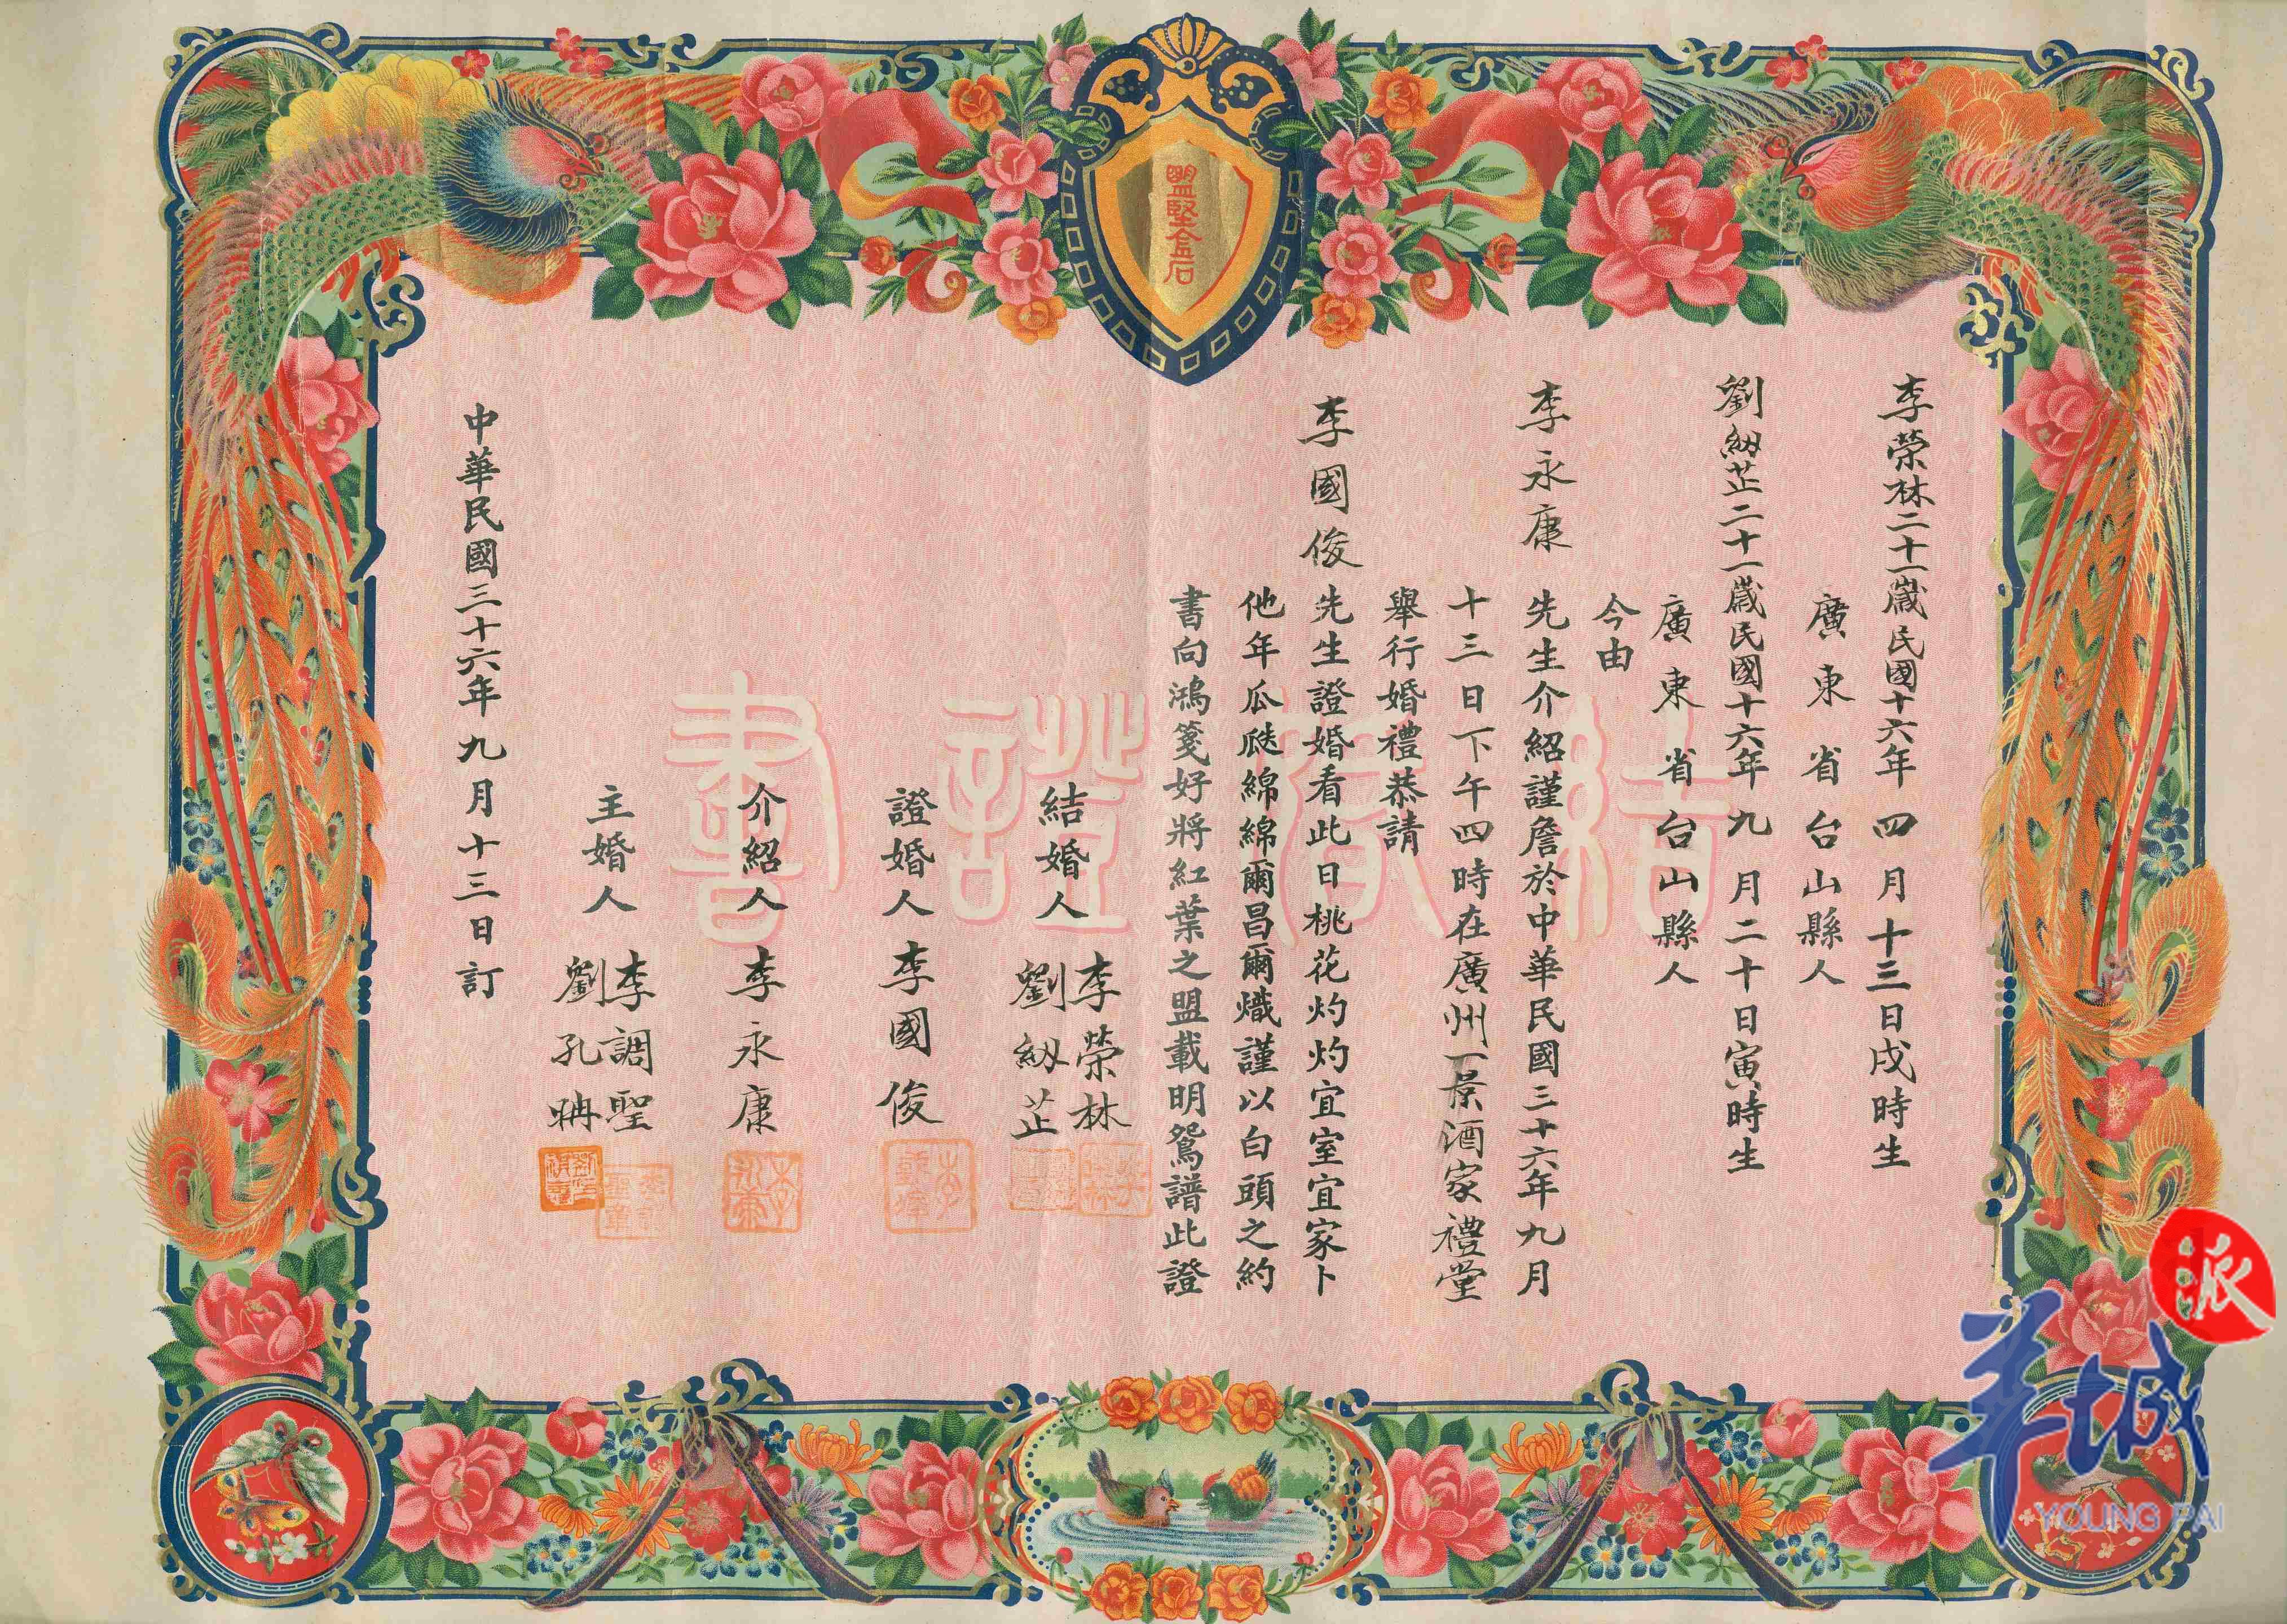 盟堅金石
結婚證書
李榮林二十一歲民國十六年四月十三日戌時生
廣東省台山縣人
劉紉芷二十一歲民國十六年九月二十日寅時生
廣東省台山縣人
今由
李永康先生介紹謹詹於中華民國三十六年九月
十三日下午四時在廣州一景酒家禮堂
舉行婚禮恭請
李國俊先生證婚看此日桃花灼灼宜室宜家卜
他年瓜瓞綿綿爾昌爾熾謹以白頭之約
書向鴻箋好將紅葉之盟載明鴛譜此證
結婚人 李榮林
劉紉芷
證婚人 李國俊
介紹人 李永康
主婚人 李調聖
劉孔
中華民國三十六年九月十三日訂
羊城派
YOUNG PAI